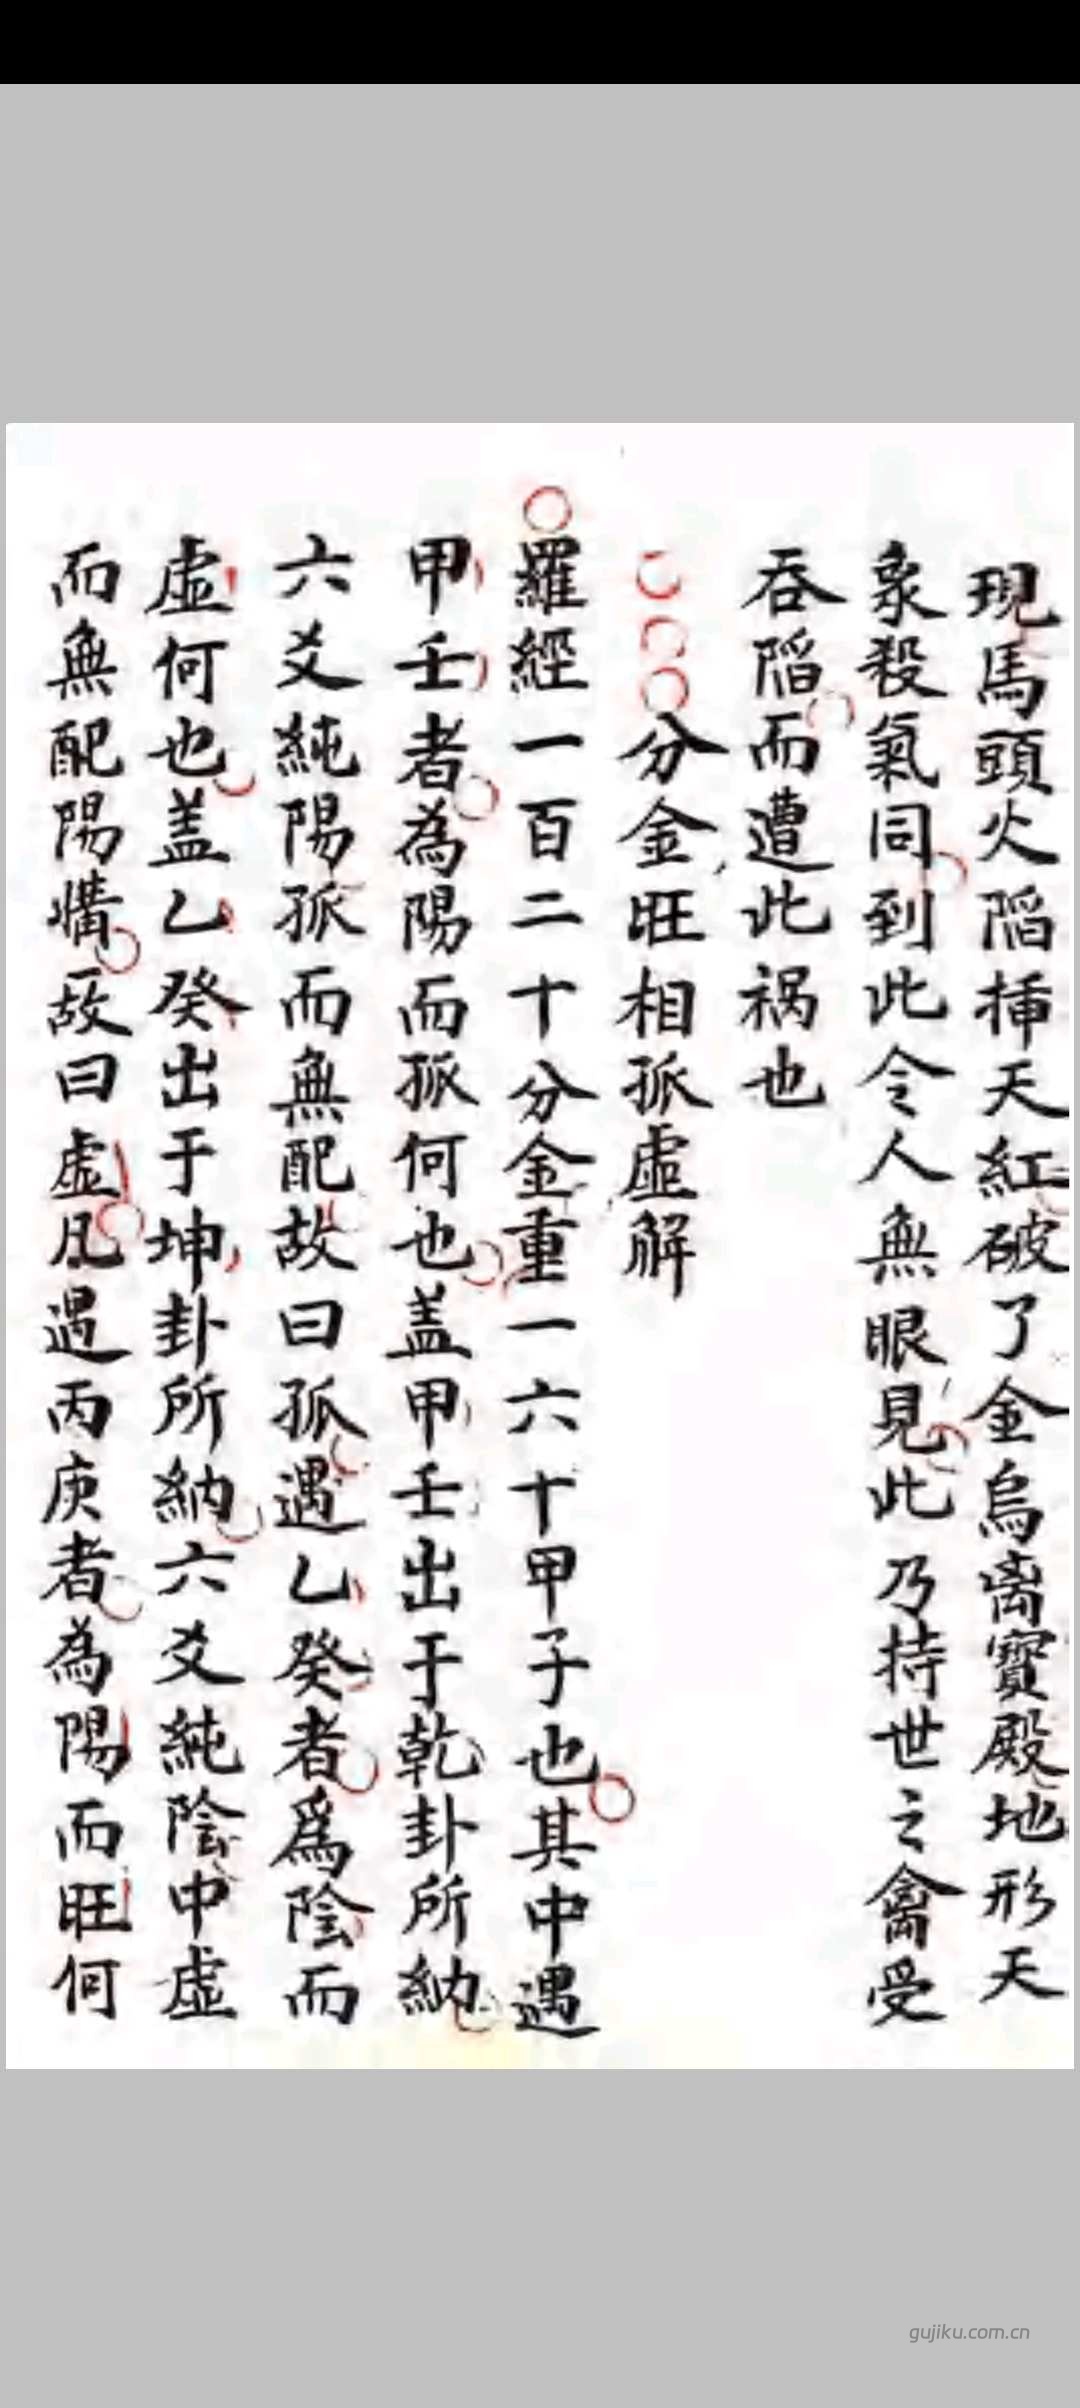 現馬頭火陷揷天紅破了金烏离寶殿地形天
象殺氣同到此令人無眼見此乃持世之禽受
吞陷而遭此禍也
分金旺相孤虛解
羅經一百二十分金重一六十甲子也其中遇
甲壬者為陽而孤何也盖甲壬出于乾卦所納
六爻純陽孤而無配故曰孤遇乙癸者爲陰而
虛何也盖乙癸出于坤卦所納六爻純陰中虛
而無配陽情故曰虛凡遇丙庚者為陽而旺何
gujiku.com.cn